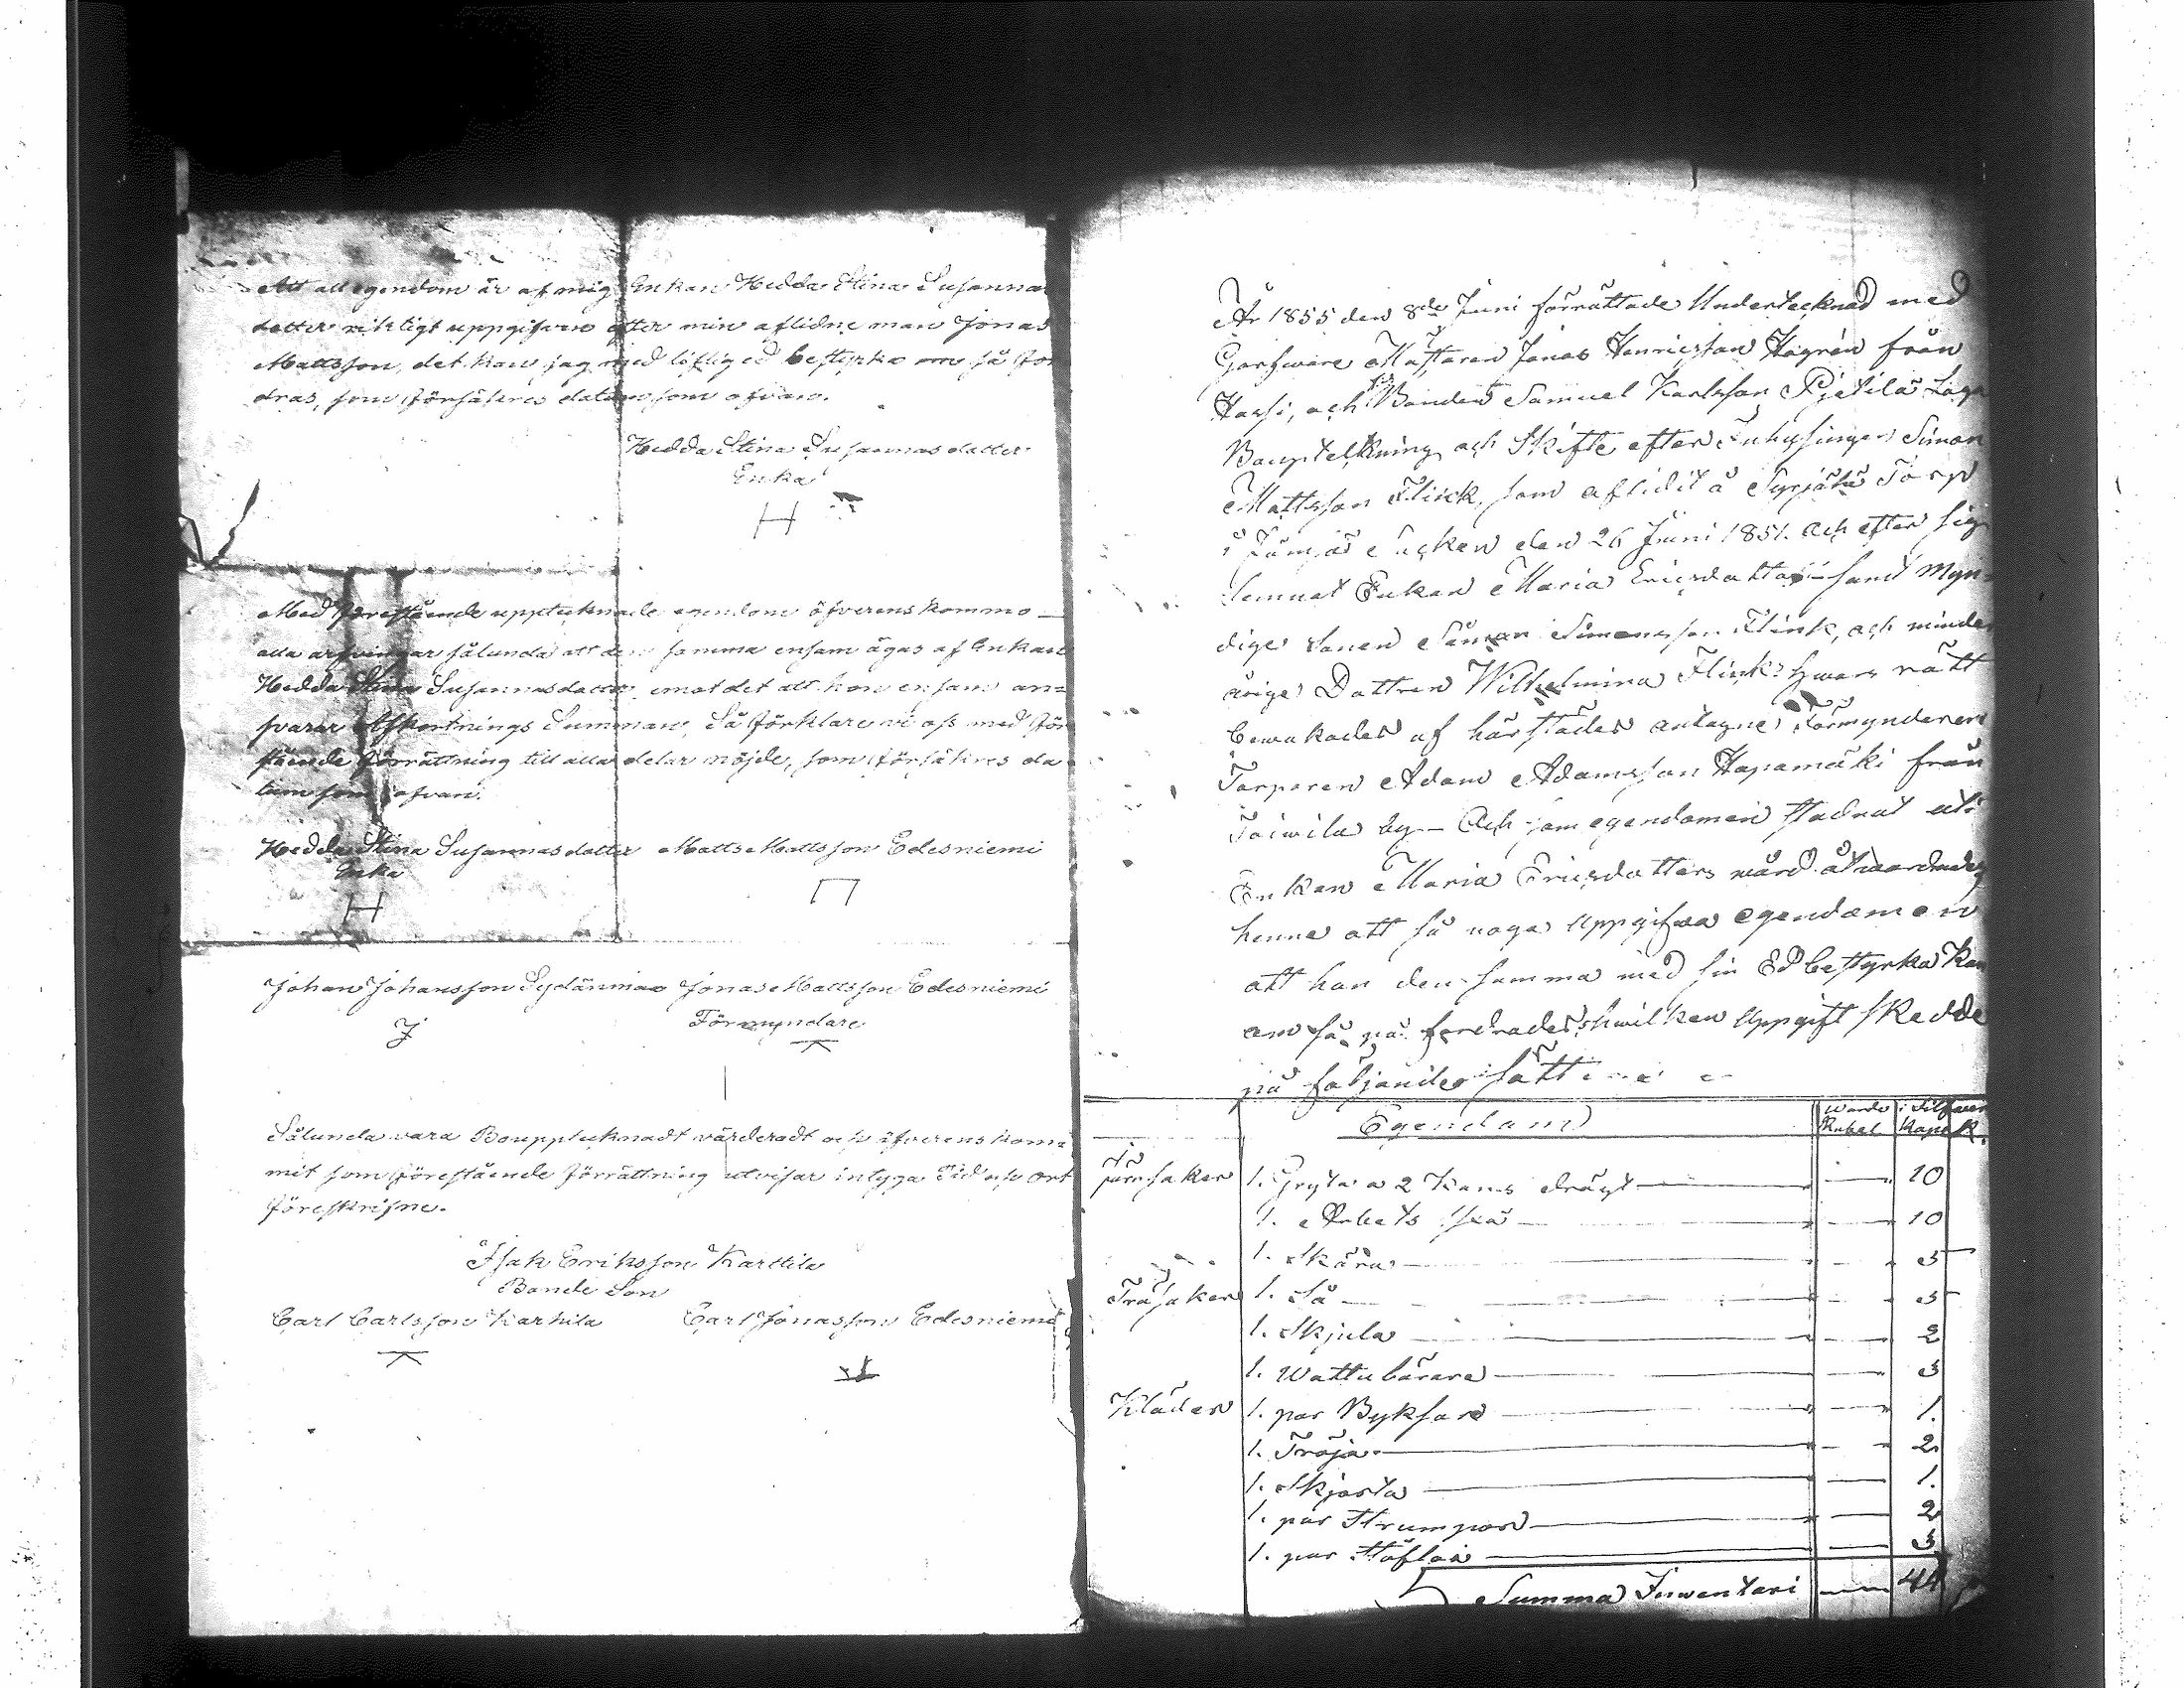 Att all egendom är af mig Enkan Hedda Stina Susannas
dotter riktigt uppgifven efter min aflidne man Jonas
Mattsson, det kan jag med liflig ed bestyrka om så for
dras, som försäkres datum som ofvan.
Hedda Stina Susannasdotter
Enka
Med förestående uppteknade egendom öfverenskommo
alla arfvingar sålunda att den samma ensam äges af Enkan
Hedda Stina Susannasdotter emot det att hon ensam an=
svarar Afkortnings Summan, Så förklare vi oss med före
stående förrättning till alla delar nöjde, som försäkres da
tum som ofvan.
Hedda Stina Susannasdotter Matts Mattsson Edesniemi
Enka
Johan Johansson Sydänmaa Jonas Mattsson Edesniemi
Förmyndare
Sålunda vara Bouppteknadt värderadt och öfverenskom
mit som förestående förrättning utvisar intyga Tid och ort
föreskrifne.
Isak Eriksson Karttila
Bonde Son
Carl Carlsson Karhila Carl Jonasson Edesniemi
År 1855 den 8de Juni förrättade Undertecknad med
Garfware Mästaren Jonas Henricsson Hagrén från
Harsi, och Bonden Samuel Karlsson Pjetilä Laga
Boupteckning och Skifte efter Inhysingen Simon
Mattsson Flink, som aflidit å Syrjälä Torp
i Jämijä Socken den 26 Juni 1851. och efter sig
lemnat Enkan Maria Ericsdotter samt Myn=
dige Sonen Simon Simonsson Flink, och minder
årige Dottren Wilhelmina Flink: hwars rätt
bewakades af härstädes antagne Förmynderen
Torparen Adam Adamsson Hapamäki från
by — Och som egendomen stadnat uti
Enkan Maria Ericsdotters wård
henne att så noga Uppgifwa egendomen
att hon den samma med sin Ed bestyrka kan
om så på fordrades, hwilken Uppgift skedde
på följande sätt
Egendom Wärde i Silfwer
Rubel Kopek.
Järnsaker 1. Gryta a 2 Kans drägt — 10
1. Arbets Yxa — 10
1. Skära — 5
Träsaker 1. Så — 5
1. Skjula — 2
1. Wattubärare — 3
Kläder 1. par Byksor — 1.
1. Tröja — 2
1. Skjorta — 1.
1. par Strumpor — 2
1. par Stöflar — 3
Summa Inwentari — 44